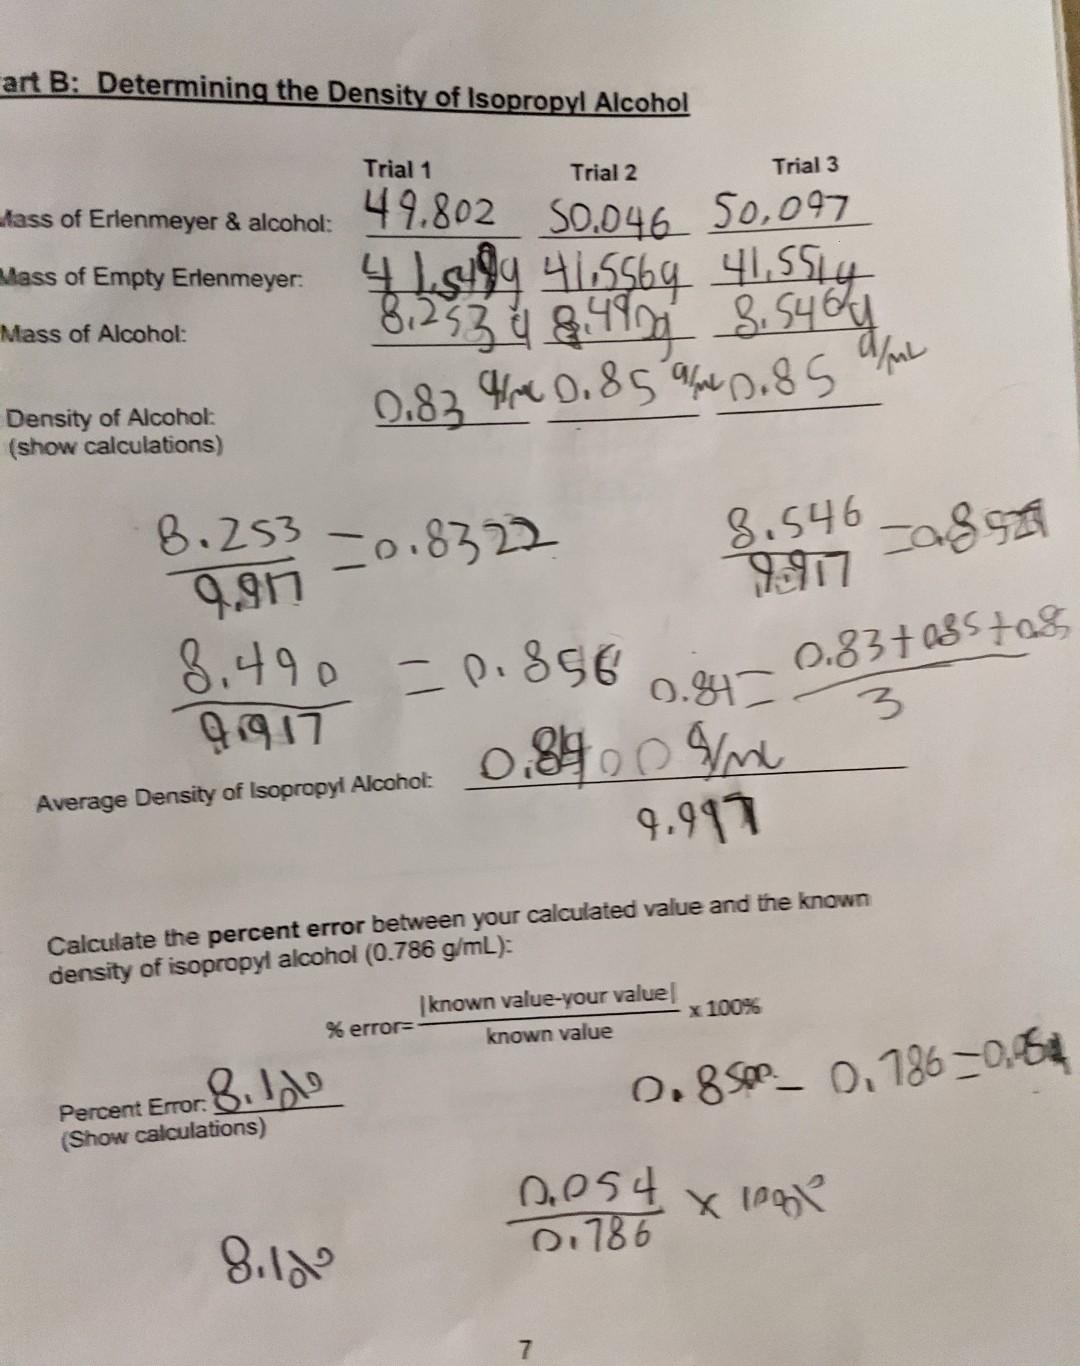 art B: Determining the Density of Isopropyl Alcohol
Trial 1 Trial 2 Trial 3
Mass of Erlenmeyer & alcohol: 49.802 50.046 50.097
Mass of Empty Erlenmeyer: 41.549g 41.556g 41.551g
Mass of Alcohol: 8.253g 8.490g 8.546g
Density of Alcohol: 0.83 g/mL 0.85 g/mL 0.85 g/mL
(show calculations)
8.253/9.917 = 0.8322
8.546/9.917
8.490/9.917 = 0.856
0.84 = 0.83+0.85+0.85/3
Average Density of Isopropyl Alcohol: 0.8400 g/mL
9.997
Calculate the percent error between your calculated value and the known
density of isopropyl alcohol (0.786 g/mL):
% error= |known value-your value|/known value x 100%
Percent Error: 8.1%
(Show calculations)
0.8500 - 0.786 =
0.054/0.786 x 100%
8.1%
7